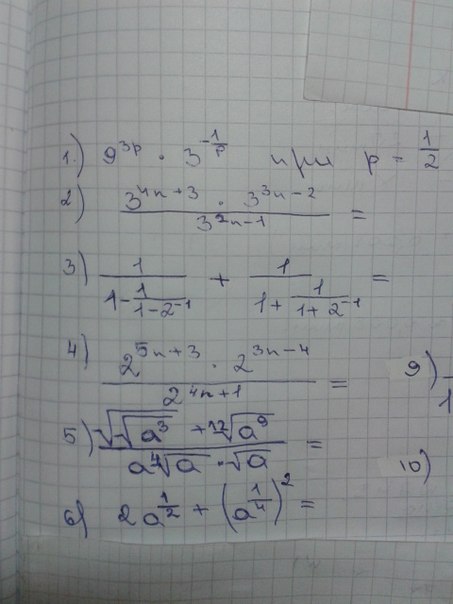 1.) 9^{3p} · 3^{-\frac{1}{p}} при p = \frac{1}{2}
2) \frac{3^{4n+3} · 3^{3n-2}}{3^{2n-1}} =
3) \frac{1}{1-\frac{1}{1-2^{-1}}} + \frac{1}{1+\frac{1}{1+2^{-1}}} =
4) \frac{2^{5n+3} · 2^{3n-4}}{2^{4n+1}} =
9) 1
5) \frac{\sqrt{\sqrt{a^3}} + \sqrt[12]{a^9}}{a\sqrt[4]{a} · \sqrt{a}} =
10)
6) 2a^{\frac{1}{2}} + (a^{\frac{1}{4}})^2 =